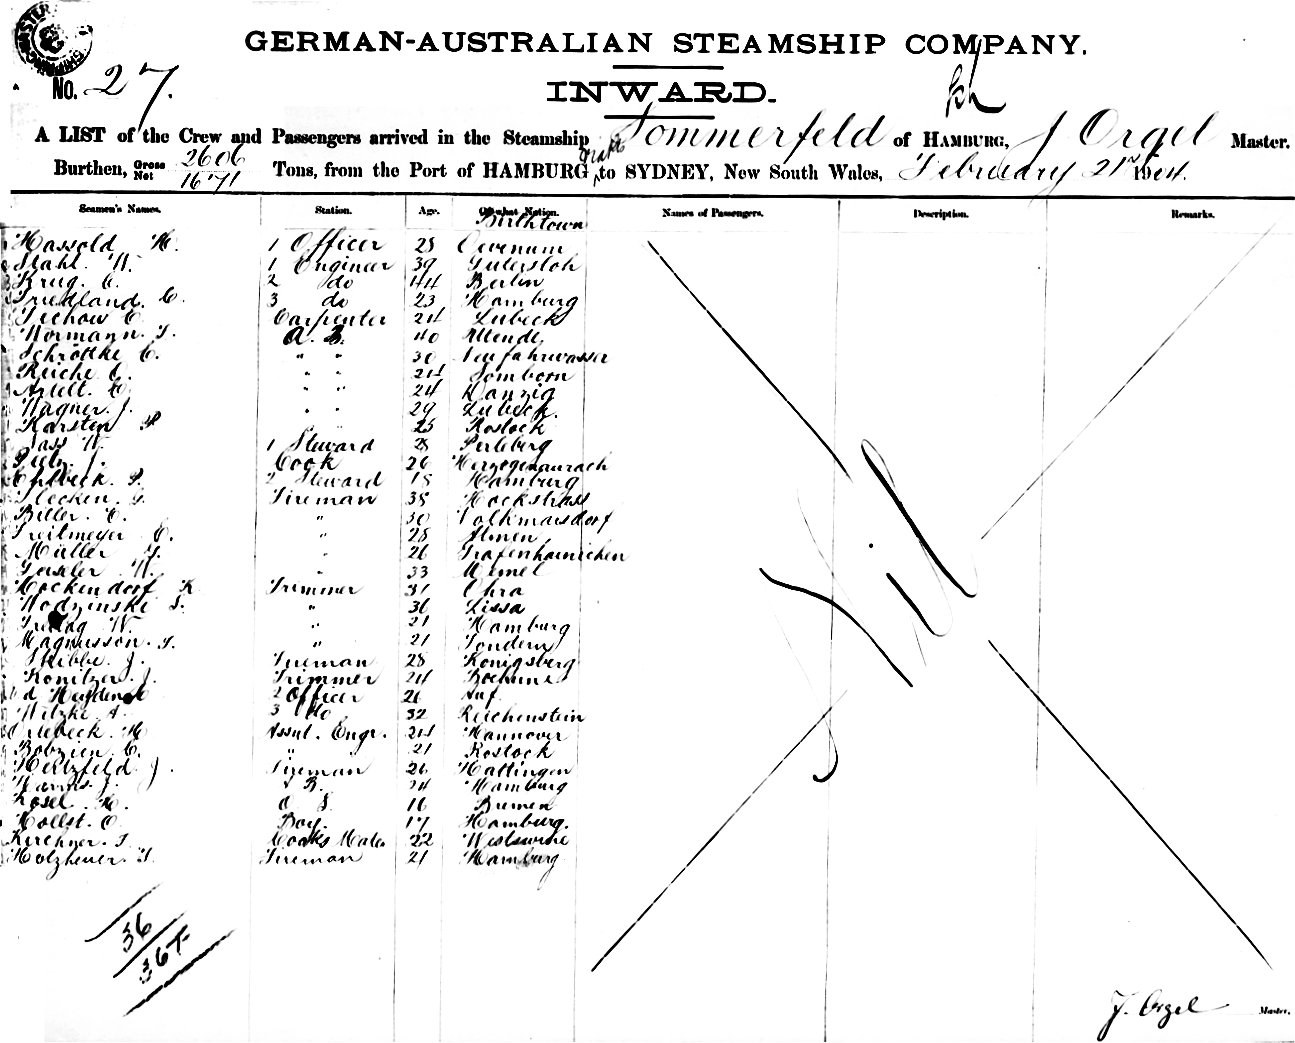 GERMAN-AUSTRALIAN STEAMSHIP COMPANY.
No. 27.
INWARD.
A LIST of the Crew and Passengers arrived in the Steamship Sommerfeld of HAMBURG, J Orgel Master.
Burthen, Gross 2606 Net 1671 Tons, from the Port of HAMBURG to SYDNEY, New South Wales, February 21st 1904.
Seamen's Names. Station. Age. Of what Nation. Birthtown Names of Passengers. Description. Remarks.
Hassold H. 1 Officer 28 Ovenum
Stahl. W. 1 Engineer 39 Gutersloh
Krug. C. 2 do 44 Berlin
Friedland. C. 3 do 23 Hamburg
Techow C. Carpenter 24 Lubeck
Wormann. F. A. B. 40
Schröttke C. " " 30 Neufahrwasser
Reiche C. " " 24 Somborn
" " 24 Danzig
Wagner. J. " " 29 Lubeck.
Karsten " " 25 Rostock
Jass W. 1 Steward 28 Perleberg
Cook 26 Herzogenaurach
Ehlbeck. P. 2 Steward 18 Hamburg
Flecken. G. Fireman 38 Hockstrass
Biller. C. " 30 Volkmarsdorf
Freitmeyer C. " 28 Ilmen
Müller F. " 26 Grafenhainichen
Geisler W. " 33 Memel
Hockendorf K Trimmer 31 Ohra
Wodzinski S. " 36 Lissa
Freitag W. " 21 Hamburg
Magnusson. F. " 21 Tondern
Skibbe. J. Fireman 28 Konigsberg
Konitzer. J. Trimmer 24 Bochum
2 Officer 26
Witzke A. 3 do 32 Reichenstein
H Assist. Engr. 24 Hannover
Bobzien C. " 21 Rostock
Hertzfeld J. Fireman 26 Hattingen
Harms. J. A B. 24 Hamburg
Rosel. H. O. S. 16 Bremen
Hollst. O. Boy. 17 Hamburg.
Kirchner. F. Cooks Mate 22
Holzheuer. F. Fireman 21 Hamburg
Nil
36
36
J. Orgel Master.